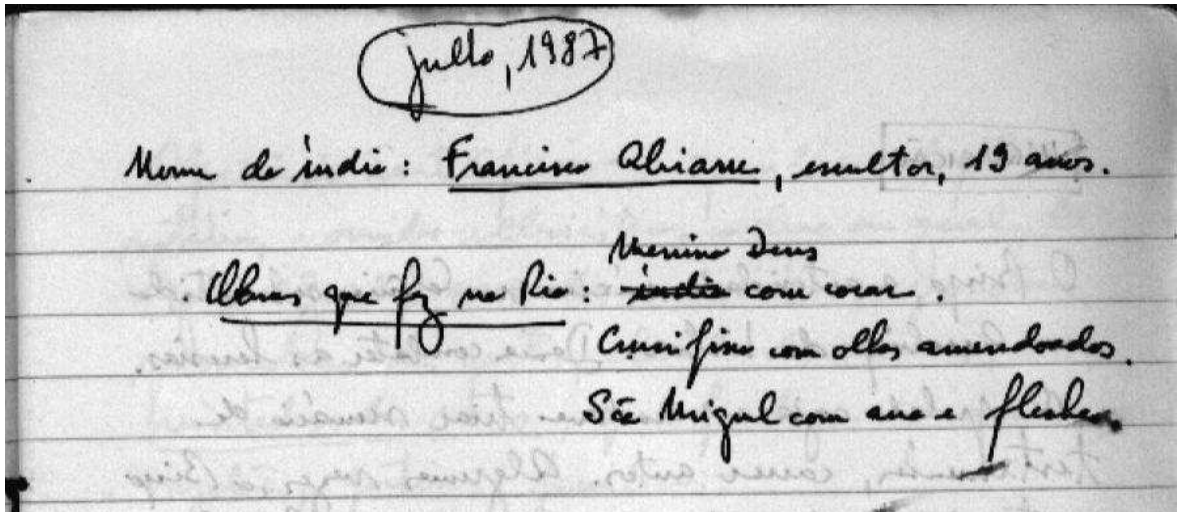 julho, 1987
Nome do índio: Francisco Abiaru, escultor, 19 anos.
Menino Deus
. Obras que fez no Rio: índio com cocar.
Crucifixo com olhos amendoados.
São Miguel com arco e flechas.